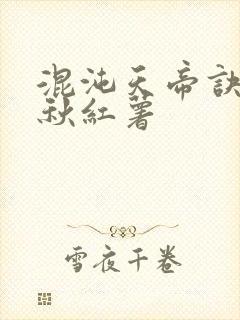 混沌天帝訣
秋紅薯
雪夜千卷